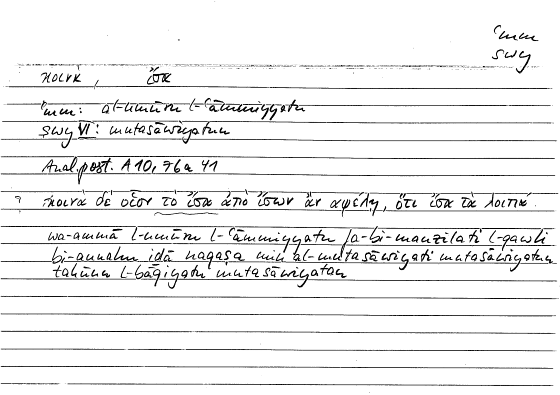 ʿmm
swy
κοινά, ἴσα
ʿmm: al-umūru l-ʿāmmiyyatu
swy VI: mutasāwiyatun
Anal. post. A 10, 76 a 41
? κοινὰ δὲ οἷον τὸ ἴσα ἀπὸ ἴσων ἂν ἀφέλῃ, ὅτι ἴσα τὰ λοιπά.
wa-ammā l-umūru l-ʿāmmiyyatu fa-bi-manzilati l-qawli
bi-annahu iḏā naqaṣa min al-mutasāwiyati mutasāwiyatun
takūnu l-bāqiyatu mutasāwiyatan